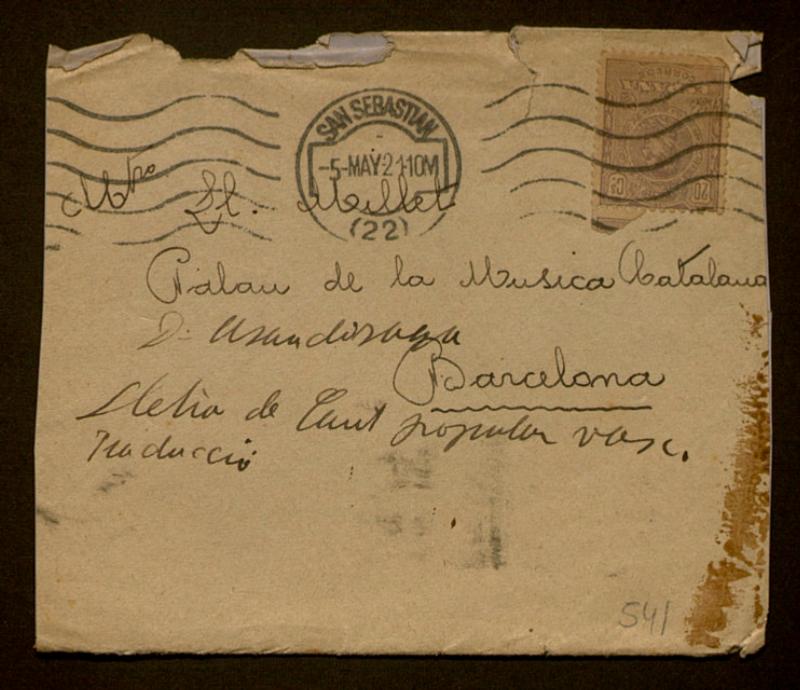 SAN SEBASTIAN
-5-MAY 21·10M
(22)
CORREOS
20 CS
Mtro Ll. Millet
Palau de la Musica Catalana
D. Usandizaga
Barcelona
Lletra de Cant popular vasc.
Traducció
541